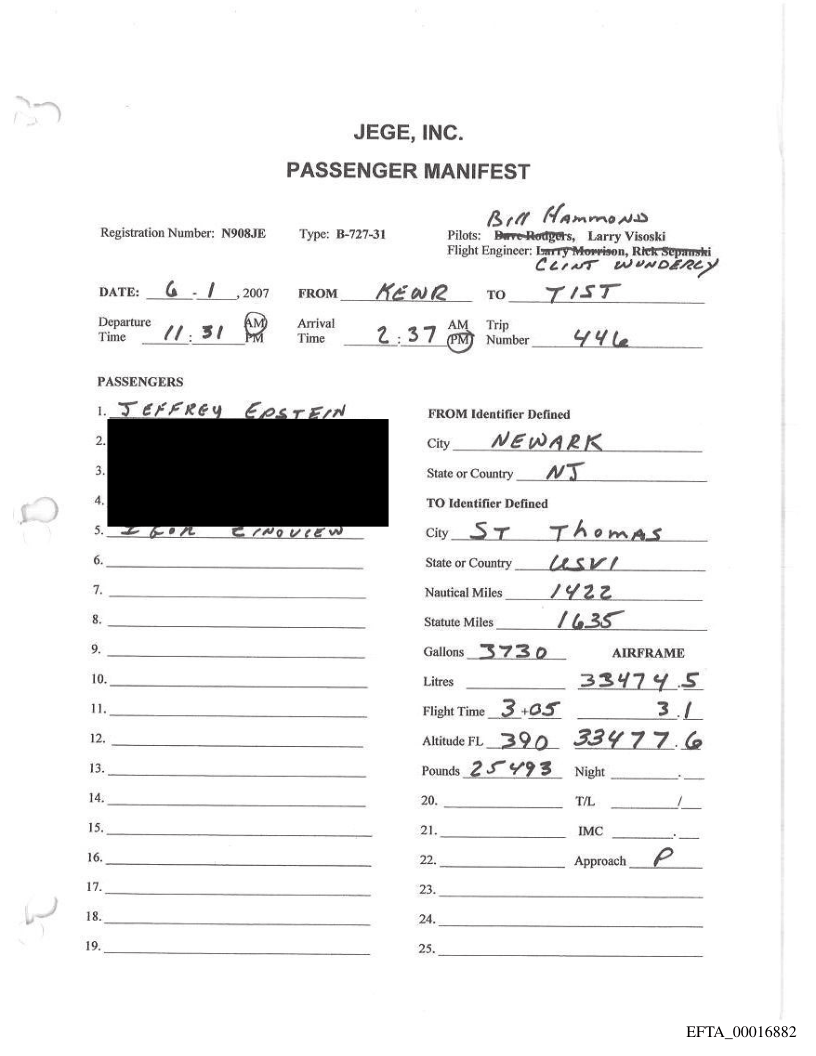 JEGE, INC.
PASSENGER MANIFEST
Bill Hammond
Registration Number: N908JE Type: B-727-31 Pilots: Dave Rodgers, Larry Visoski
Flight Engineer: Larry Morrison, Rick Sepanski
CLINT WUNDERLY
DATE: 6 - 1 , 2007 FROM KEWR TO TIST
Departure Time 11 : 31 AM PM Arrival Time 2 : 37 AM PM Trip Number 446
PASSENGERS
1. JEFFREY EPSTEIN
FROM Identifier Defined
2.
City NEWARK
3.
State or Country NJ
4.
TO Identifier Defined
5. IGOR ZINOVIEW
City ST Thomas
6.
State or Country USVI
7.
Nautical Miles 1422
8.
Statute Miles 1635
9.
Gallons 3730 AIRFRAME
10.
Litres 33474.5
11.
Flight Time 3+05 3.1
12.
Altitude FL 390 33477.6
13.
Pounds 25493 Night .
14.
20. T/L /
15.
21. IMC .
16.
22. Approach P
17.
23.
18.
24.
19.
25.
EFTA_00016882